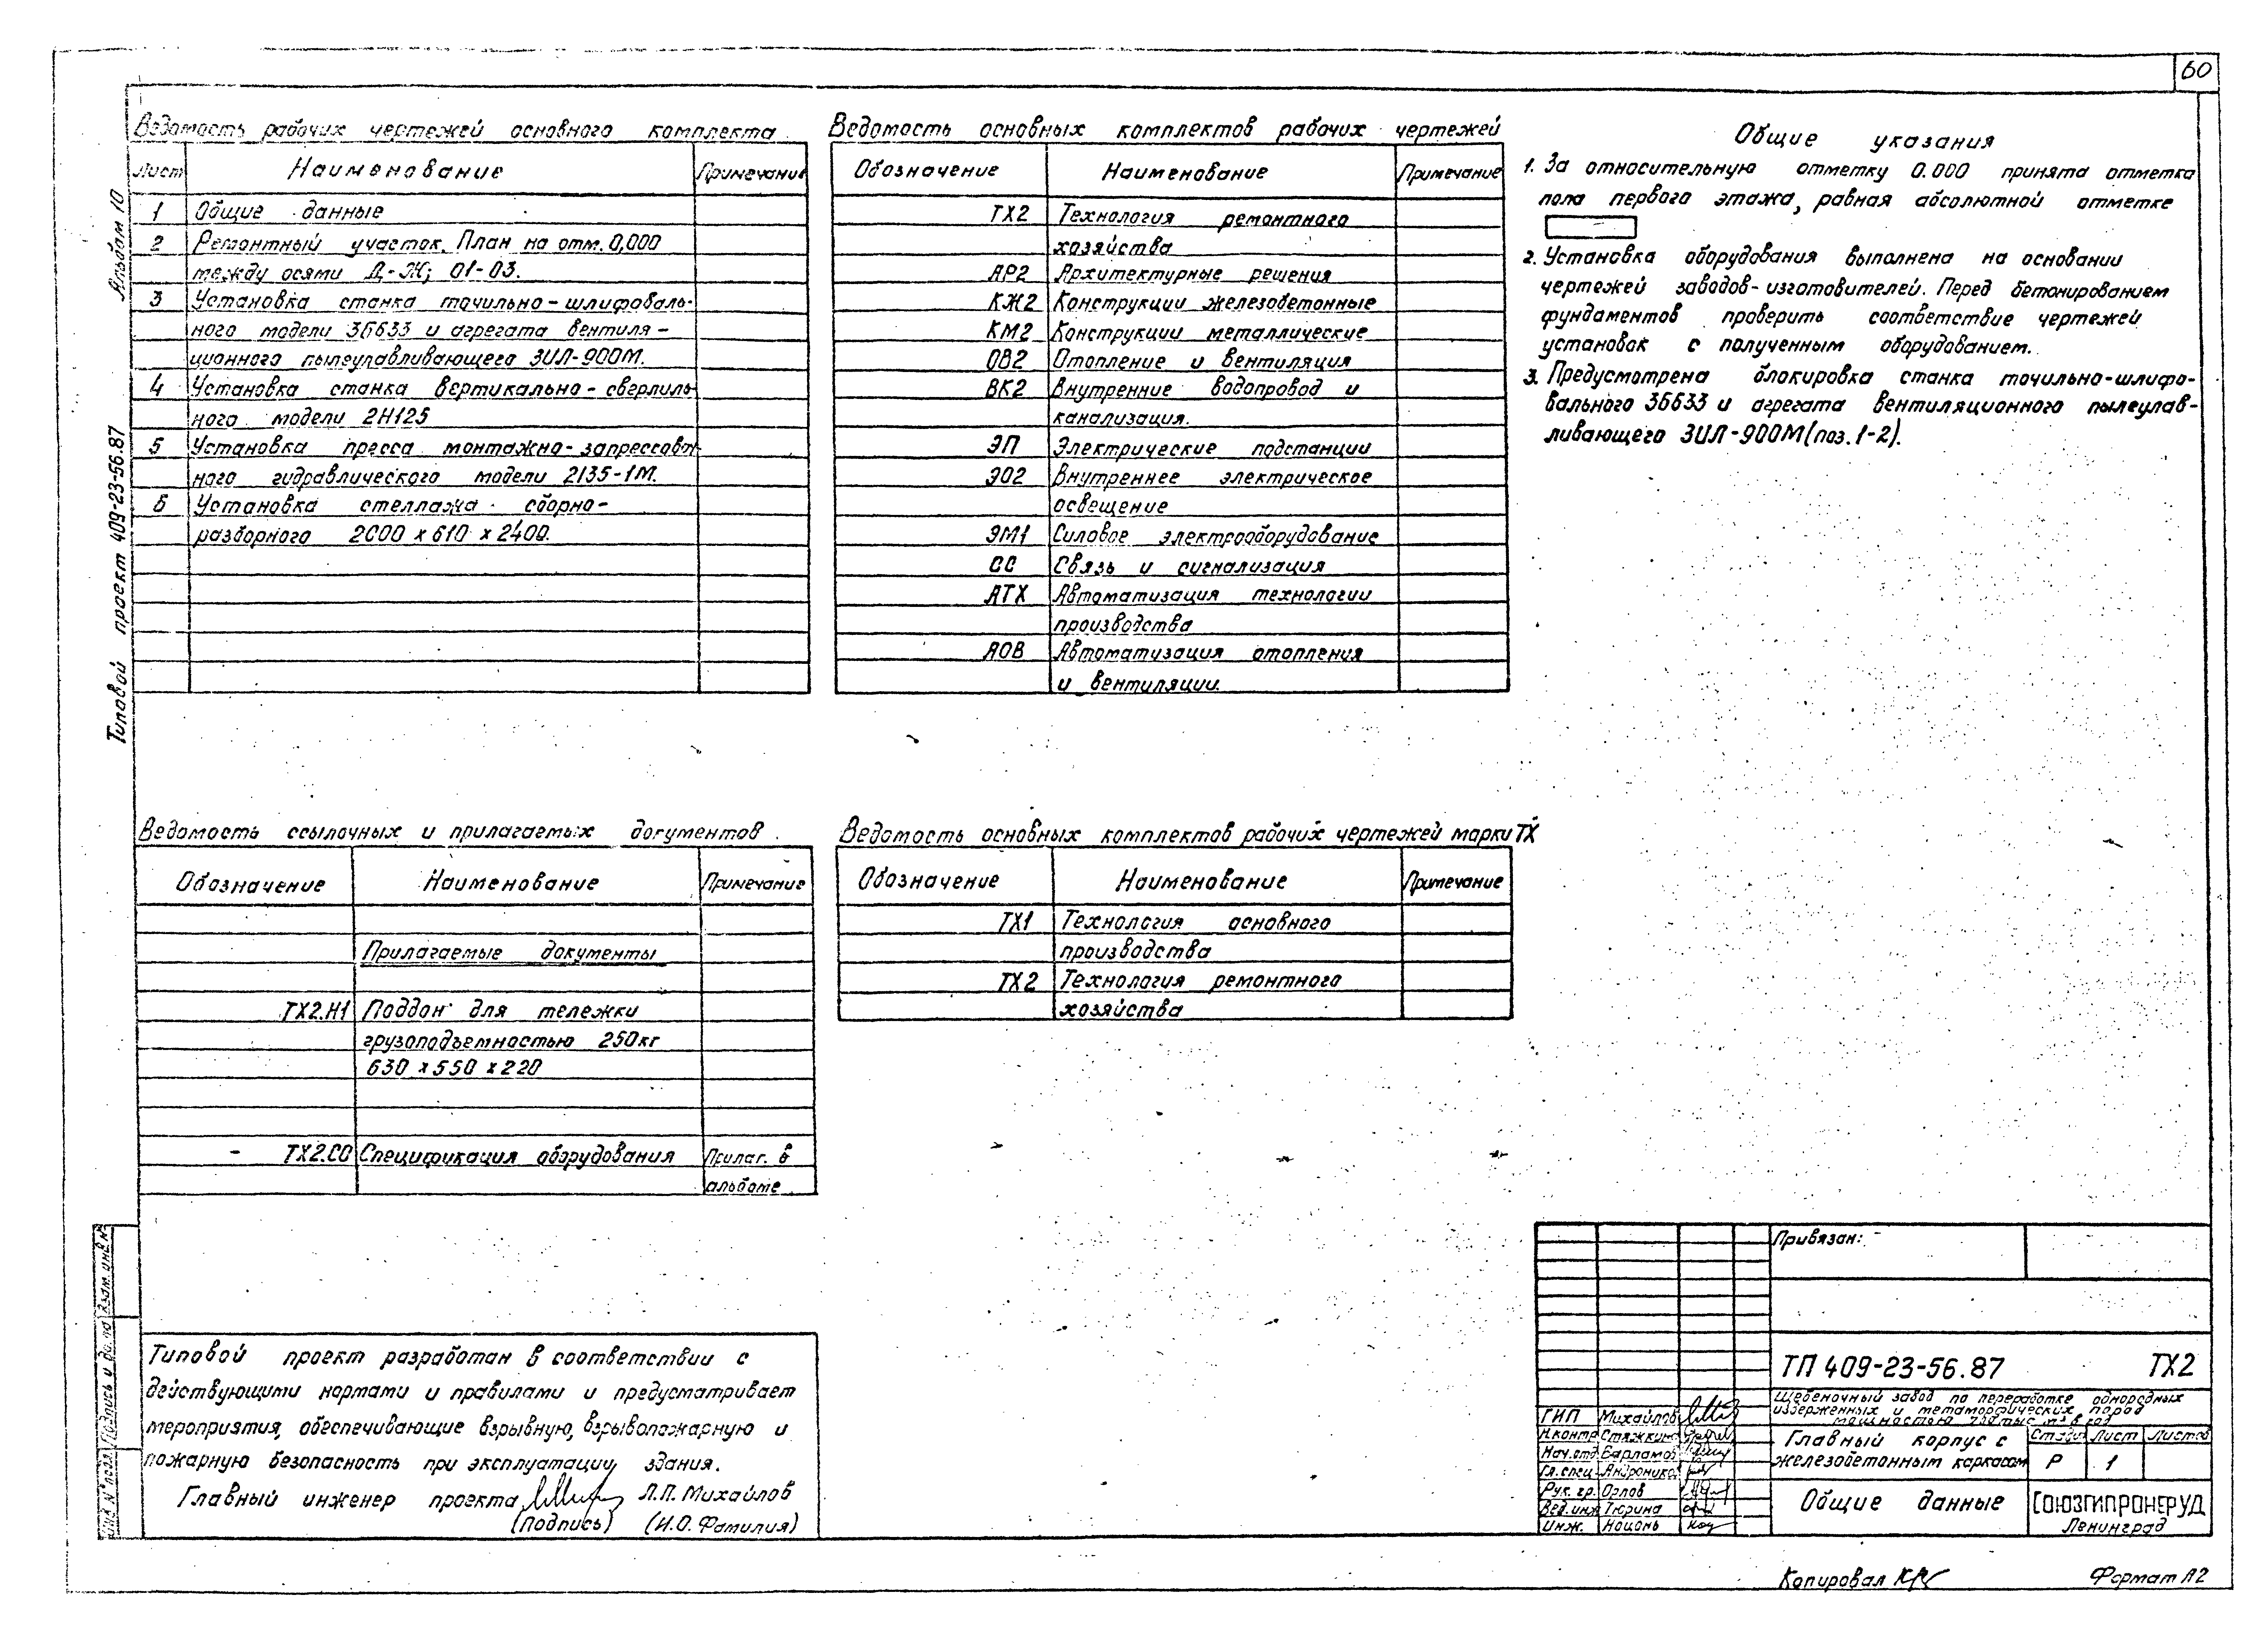 60
Альбом 10
Типовой проект 409-23-56.87
Ведомость рабочих чертежей основного комплекта
Лист Наименование Примечание
1 Общие данные
2 Ремонтный участок. План на отм. 0,000
между осями Д-Ж; 01-03.
3 Установка станка точильно-шлифоваль-
ного модели 3Б633 и агрегата вентиля-
ционного пылеулавливающего ЗИЛ-900М.
4 Установка станка вертикально-сверлиль-
ного модели 2Н125
5 Установка пресса монтажно-запрессовоч-
ного гидравлического модели 2135-1М.
6 Установка стеллажа сборно-
разборного 2000 х 610 х 2400.
Ведомость основных комплектов рабочих чертежей
Обозначение Наименование Примечание
ТХ2 Технология ремонтного
хозяйства
АР2 Архитектурные решения
КЖ2 Конструкции железобетонные
КМ2 Конструкции металлические
ОВ2 Отопление и вентиляция
ВК2 Внутренние водопровод и
канализация.
ЭП Электрические подстанции
ЭО2 Внутреннее электрическое
освещение
ЭМ1 Силовое электрооборудование
СС Связь и сигнализация
АТХ Автоматизация технологии
производства
АОВ Автоматизация отопления
и вентиляции.
Общие указания
1. За относительную отметку 0.000 принята отметка
пола первого этажа, равная абсолютной отметке
2. Установка оборудования выполнена на основании
чертежей заводов-изготовителей. Перед бетонированием
фундаментов проверить соответствие чертежей
установок с полученным оборудованием.
3. Предусмотрена блокировка станка точильно-шлифо-
вального 3Б633 и агрегата вентиляционного пылеулав-
ливающего ЗИЛ-900М (поз. 1-2).
Ведомость ссылочных и прилагаемых документов
Обозначение Наименование Примечание
Прилагаемые документы
ТХ2.Н1 Поддон для тележки
грузоподъемностью 250кг
630 х 550 х 220
- ТХ2.СО Спецификация оборудования Прилаг. в
альбоме
Ведомость основных комплектов рабочих чертежей марки ТХ
Обозначение Наименование Примечание
ТХ1 Технология основного
производства
ТХ2 Технология ремонтного
хозяйства
Типовой проект разработан в соответствии с
действующими нормами и правилами и предусматривает
мероприятия, обеспечивающие взрывную, взрывопожарную и
пожарную безопасность при эксплуатации здания.
Главный инженер проекта Л.П. Михайлов
(подпись) (И.О. Фамилия)
Инв. № подл. Подпись и дата Взам. инв. №
Привязан:
ТП 409-23-56.87 ТХ2
Щебеночный завод по переработке однородных
изверженных и метаморфических пород
мощностью тыс. м3 в год
ГИП Михайлов
Н.контр Стяжкина
Нач.отд Варламов
Гл.спец
Рук. гр. Орлов
Вед.инж Тюрина
Инж.
Главный корпус с
железобетонным каркасом
Стадия Лист Листов
Р 1
Общие данные
СОЮЗГИПРОНЕРУД
Ленинград
Копировал
Формат А2